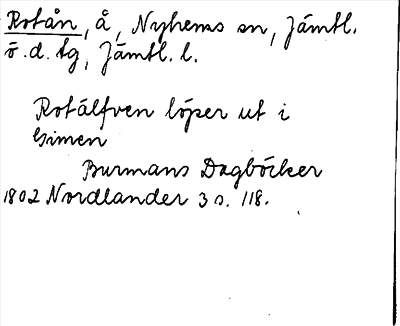 Rotån, å, Nyhems sn, Jämtl.
ö. d. tg, Jämtl. l.
Rotälfven löper ut i
Gimen
Burmans Dagböcker
1802 Nordlander 3 s. 118.